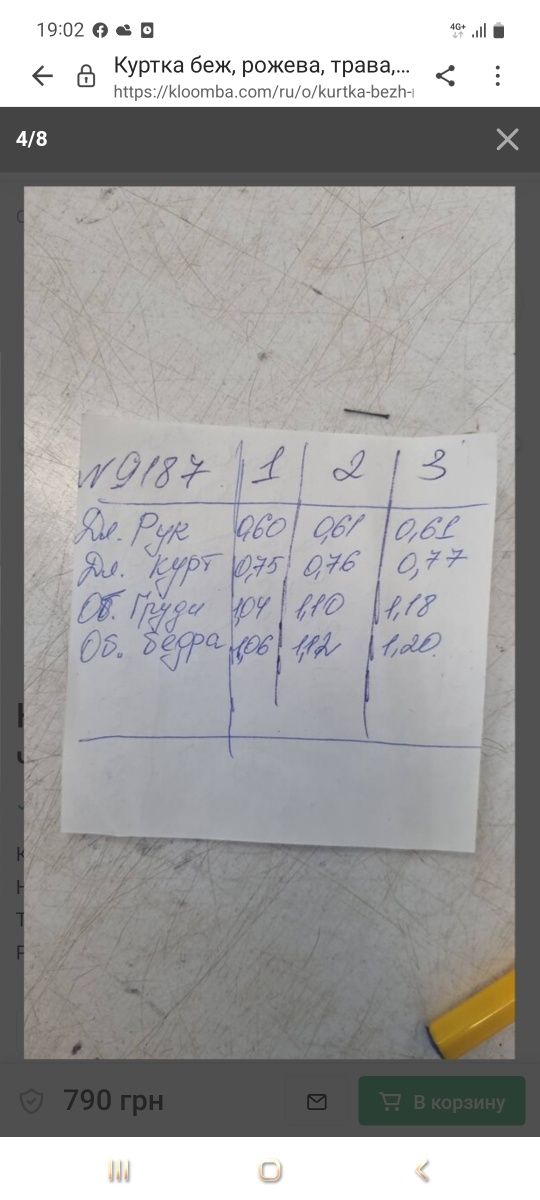 19:02
4G+
Куртка беж, рожева, трава,...
https://kloomba.com/ru/o/kurtka-bezh-
4/8
N 9187 1 2 3
Дл. Рук 0,60 0,61 0,61
Дл. Курт 0,75 0,76 0,77
Об. Груди 1,04 1,10 1,18
Об. бедра 1,06 1,12 1,20
790 грн
В корзину